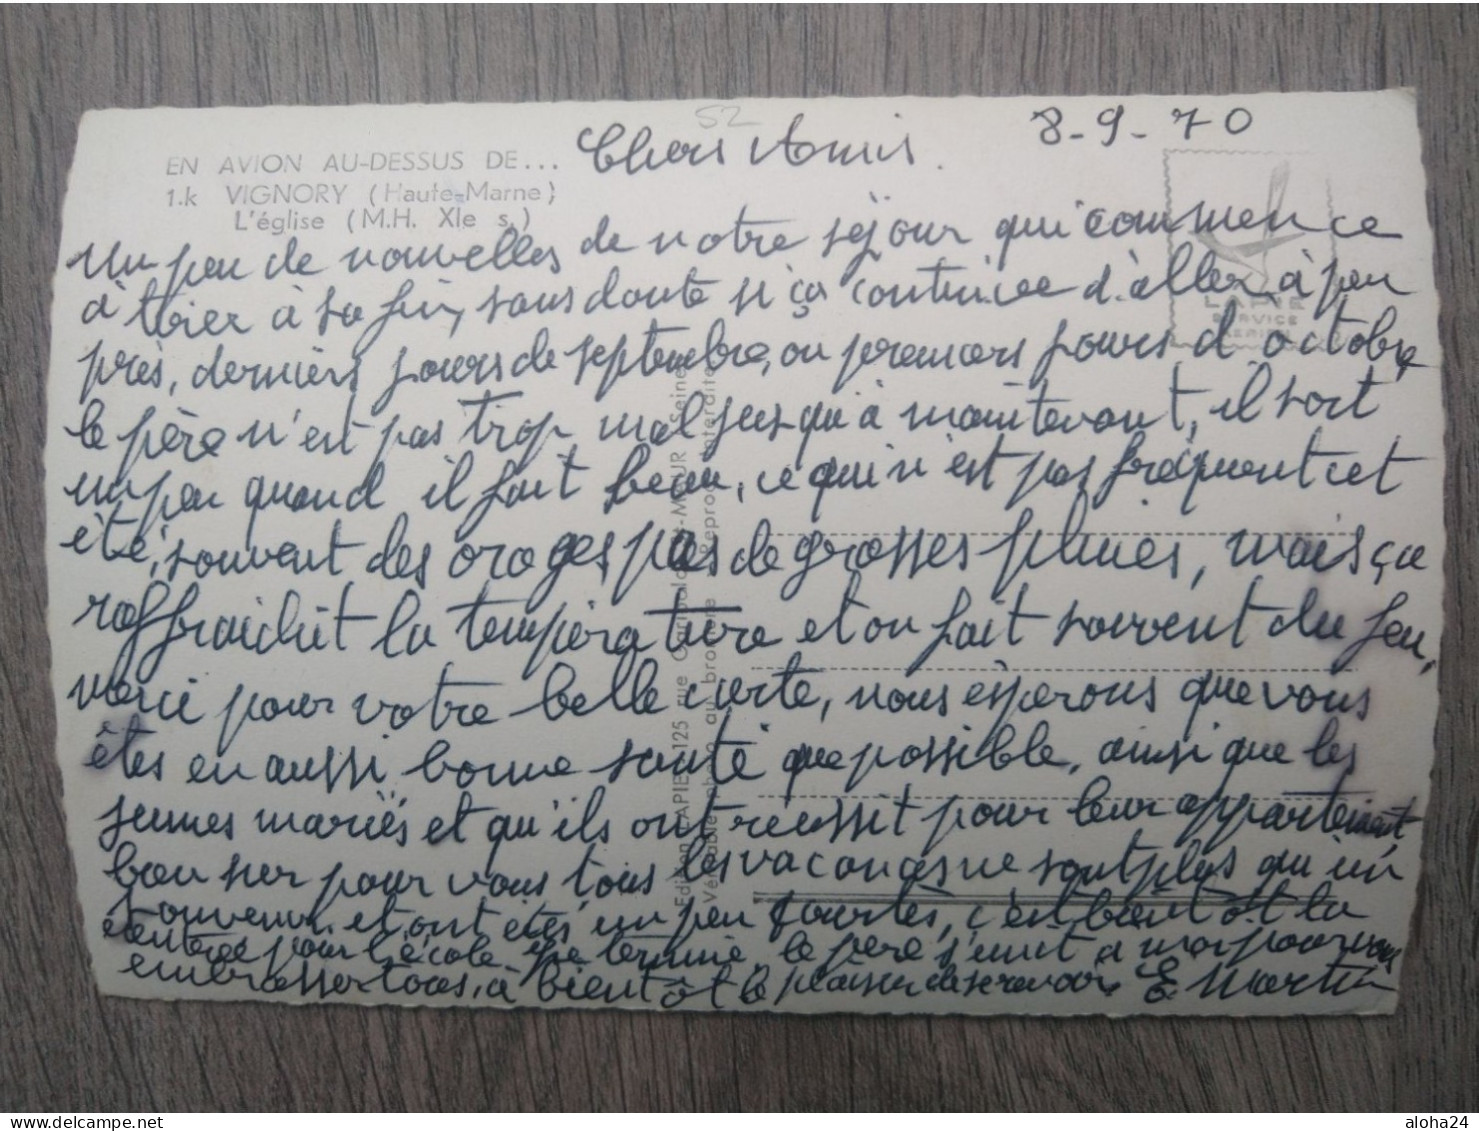 52
Chers Amis.
8-9-70
EN AVION AU-DESSUS DE...
1.k VIGNORY (Haute-Marne)
L'église (M.H. XIe s.)
LAPIE
SERVICE
AERIEN
un peu de nouvelles de notre séjour qui commence
à tirer à sa fin, sans doute si ça continue d'aller à peu
près, derniers jours de septembre, ou premiers jours d'octobre
le père n'est pas trop mal jusqu'à maintenant, il sort
un peu quand il fait beau, ce qui n'est pas fréquent cet
été, souvent des orages pas de grosses pluies, mais ça
raffraichit la température et on fait souvent du feu,
merci pour votre belle carte, nous espérons que vous
êtes en aussi bonne santé que possible, ainsi que les
jeunes mariés et qu'ils ont réussit pour leur appartement,
pour vous tous les vacances ne sont plus qu'un
souvenir et ont été un peu courtes, c'est bientôt la
rentrée pour l'école, je termine, le père s'unit à moi pour vous
embrasser tous, à bientôt le plaisir de se revoir E Martin
Edition LAPIE, 125 rue Garibaldi, St-MAUR (Seine)
Véritable photo au bromure - Reproduction interdite
aloha24